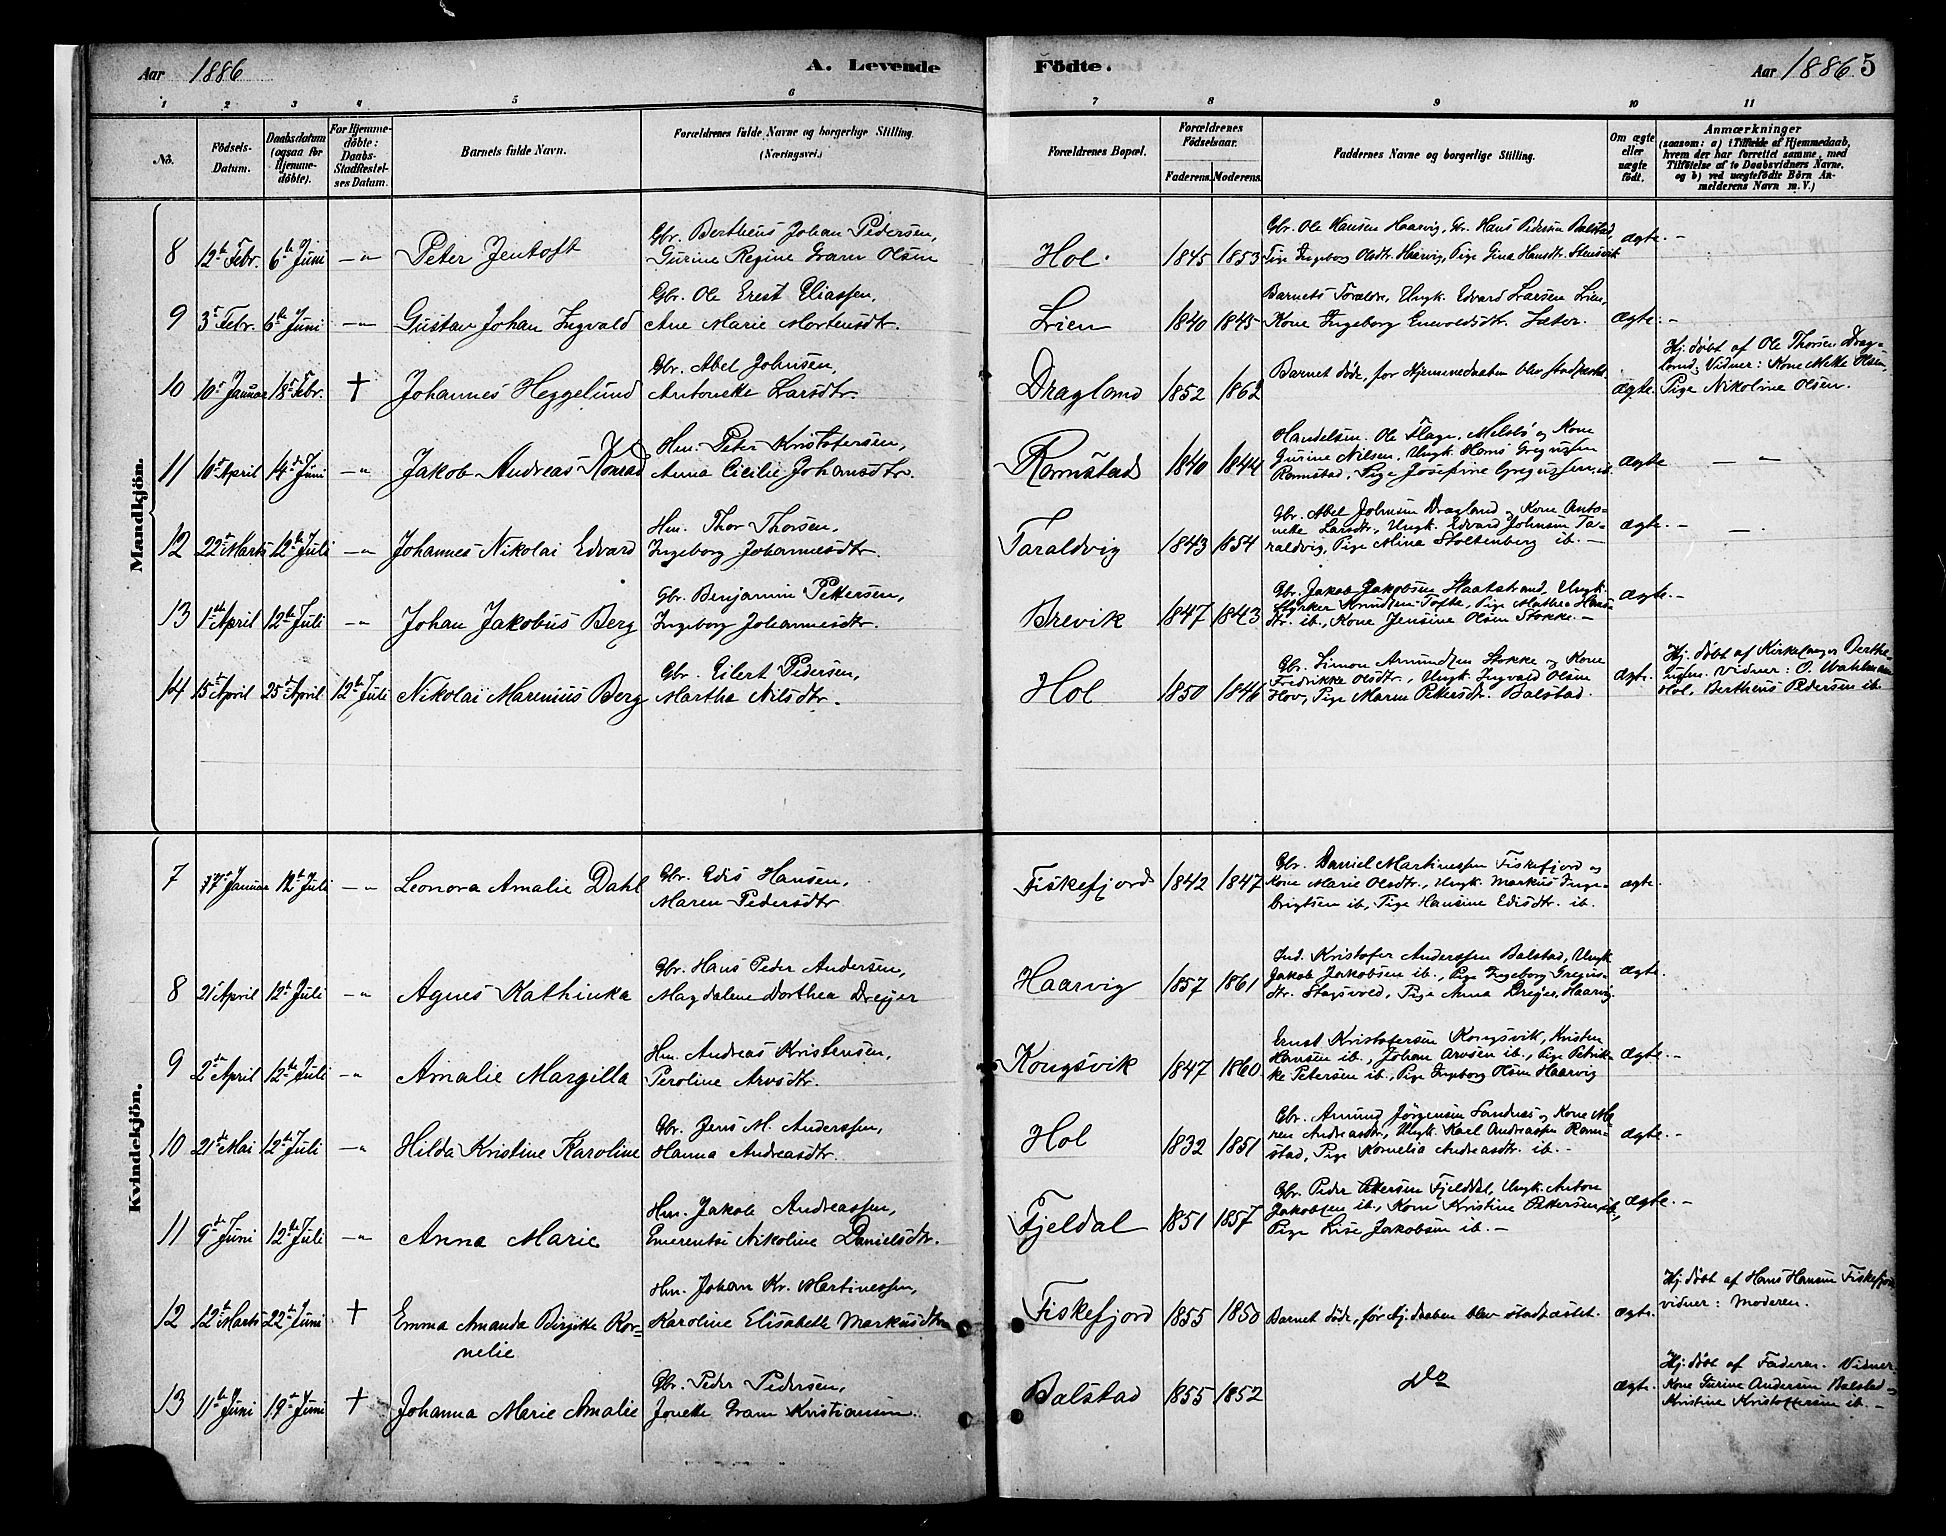 Aar 1886 A. Levende Födte. Aar 1886. 5
1 2 3 4 5 6 7 8 9 10 11
No. Födsels-Datum. Daabsdatum (ogsaa for Hjemmedöbte). For Hjemmedöbte: Daabs-Stadfæstelses Datum. Barnets fulde Navn. Forældrenes fulde Navne og borgerlige Stilling. (Næringsvei.) Forældrenes Bopæl. Forældrenes Födselsaar. Faderens. Moderens. Faddernes Navne og borgerlige Stilling. Om ægte eller uægte födt. Anmærkninger (saasom: a) i Tilfælde af Hjemmedaab, hvem der har forrettet samme, med Tilföielse af to Daabsvidners Navne, og b) ved uægtefödte Börn Anmelderens Navn m. V.)
Mandkjön.
8 12te Febr. 6te Juni –"– Peter Jentoft
Gbr. Bertheus Johan Pedersen,
Gurine Regine Gram Olsen
Hol. 1845 1853
Gbr. Ole Hansen Haarvig, Gr. Hans Pedersen Balstad,
Pige Ingeborg Olsdtr. Haarvig, Pige Gina Hansdtr. Stensvik
ægte. –
9 3die Febr. 6te Juni –"– Gustav Johan Ingvald
Gbr. Ole Erest Eliassen,
Ane Marie Mortensdtr.
Lien 1840 1845
Barnets Forældre, Ungk. Edvard Larsen Lien,
Kone Ingeborg Enevoldsdtr. Sæter.
ægte. –
10 10de Januar 18de Febr. † Johannes Heggelund
Gbr. Abel Johnsen,
Antonette Larsdtr.
Dragland 1852 1862
Barnet döde, för Hjemmedaaben blev stadfæstet.
ægte.
Hj. döbt af Ole Thorsen Drag-
land, Vidner: Kone Mette Olsen,
Pige Nikoline Olsen.
11 10de April 14de Juni –" Jakob Andreas Konrad
Hm. Peter Kristofersen,
Anna Cicilie Johansdtr.
Ramstad 1840 1844
Handelsm. Ole Flage, Melsbö og Kone
Gurine Nilsen, Ungk. Hans Gregussen
Ramstad, Pige Josefine Gregussen, ib.
ægte – " –
12 22de Marts 12te Juli –" Johannes Nikolai Edvard
Hm. Thor Thorsen,
Ingeborg Johannesdtr.
Taraldvig 1843 1854
Gbr. Abel Johnsen Dragland og Kone Anto-
nette Larsdtr., Ungk. Edvard Johnsen Ta-
raldvig, Pige Mina Stoltenberg ib. –
ægte. – –
13 1ste April 12te Juli –" Johan Jakobus Berg
Gbr. Benjamin Pettersen,
Ingeborg Johannesdtr.
Brevik 1847 1843
Gbr. Jakob Jakobsen Staatstrand, Ungk.
Styrker Knudsen Tofte, Pige Mathea Hans-
dtr. ib., Kone Jensine Olsen Stokke. –
ægte. –
14 15de April 25de April 12te Juli Nikolai Marenius Berg
Gbr. Eilert Pedersen,
Martha Nilsdtr.
Hol 1850 1846
Gbr. Simon Amundsen Stokke og Kone
Fredrikke Olsdtr., Ungk. Ingvald Olsen
Hov, Pige Maren Pettersdtr. Balstad.
ægte.
Hj. döbt af Kirkesanger Berthe-
Vidner: O. Wahlmann
Hol, Bertheus Pedersen ib.
Kvindekjön.
7 17de Januar 12te Juli –" Leonora Amalie Dahl
Gbr. Edis Hansen,
Maren Pedersdtr
Fiskefjord 1842 1847
Gbr. Daniel Martinussen Fiskefjord og
Kone Marie Olsdtr., Ungk. Markus Inge-
brigtsen ib., Pige Hansine Edisdtr. ib.
ægte.
8 21de April 12te Juli –" Agnes Kathinka
Gbr. Hans Peder Andersen,
Magdalene Dorthea Dreyer
Haarvig 1857 1861
Ind. Kristofer Anderssen Balstad, Ungk
Jakob Jakobsen ib., Pige Ingeborg Gregus-
dtr. Stagsvold, Pige Anna Dreyer, Haarvig.
ægte.
9 2den April 12te Juli –" Amalie Margilla
Hm. Andreas Kristensen,
Peroline Arvsdtr.
Kongsvik 1847 1860
Ernst Kristofersen Kongsvik, Kristen
Hansen ib., Johan Arvsen ib., Pige Petrik-
ke Petersen ib., Pige Ingeborg Olsen Haarvig
ægte. –
10 21de Mai 12te Juli –" Hilda Kristine Karoline
Gbr. Jens M. Anderssen,
Hanna Andreasdtr.
Hol 1832 1851
Gbr. Amund Jörgensen Sandnes og Kone Ma-
ren Andreasdtr, Ungk. Karl Andreassen Ram-
stad, Pige Kornelia Andreasdtr. ib. –
ægte. –
11 9de Juni 12te Juli –" Anna Marie
Hm. Jakob Andreassen,
Emerentse Nikoline Danielsdtr.
Fjeldal 1851 1857
Gbr. Peder Pettersen Fjeldal, Ungk. Anton
Jakobsen ib., Kone Kristine Pettersen, ib.,
Pige Lise Jakobsen ib. –
ægte. –
12 12te Marts 22de Juni † Emma Amanda Birgitte Kor-
nelie
Hm. Johan Kr. Martinessen,
Karoline Elisabeth Markusdtr
Fiskefjord 1855 1850
Barnet döde, för Hj. daaben blev stadfæstet.
ægte.
Hj. döbt af Hans Hansen Fiskefjord
vidner: Moderen.
13 11te Juni 19de Juni † Johanna Marie Amalie
Gbr. Peder Pedersen,
Jonette Gram Kristiansen.
Balstad 1855 1852
do
ægte.
Hj. döbt af Faderen. Vidner
Kone Turine Andersen Balstad
Kristine Kristoffersen ib. –